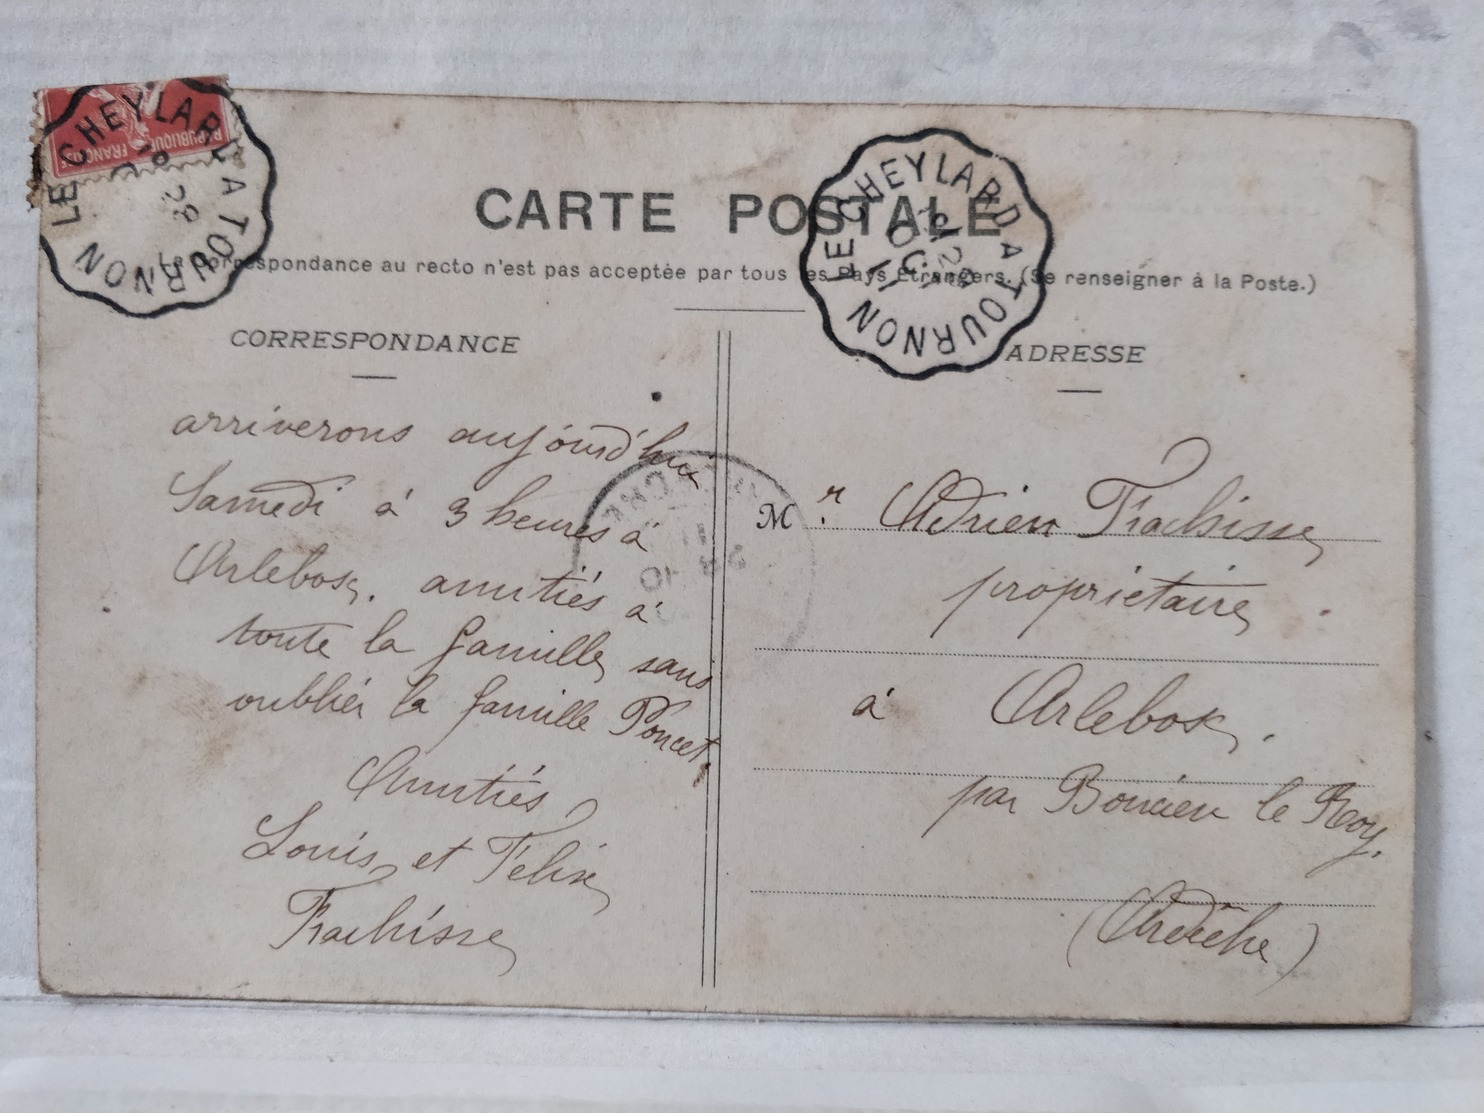 RÉPUBLIQUE FRANÇAISE
LE CHEYLARD A TOURNON
28
CARTE POSTALE
LE CHEYLARD A TOURNON
28
OCT
11
La Correspondance au recto n'est pas acceptée par tous les Pays Etrangers. (Se renseigner à la Poste.)
CORRESPONDANCE
arriverons aujourd'hui
Samedi à 3 heures à
Arlebosc. amitiés à
toute la famille sans
oublier la famille Poncet.
Amitiés
Louis et Félix
Frachisse
ADRESSE
M.r Adrien Frachisse
propriétaire
à Arlebosc.
par Boucieu le Roy.
(Ardèche)